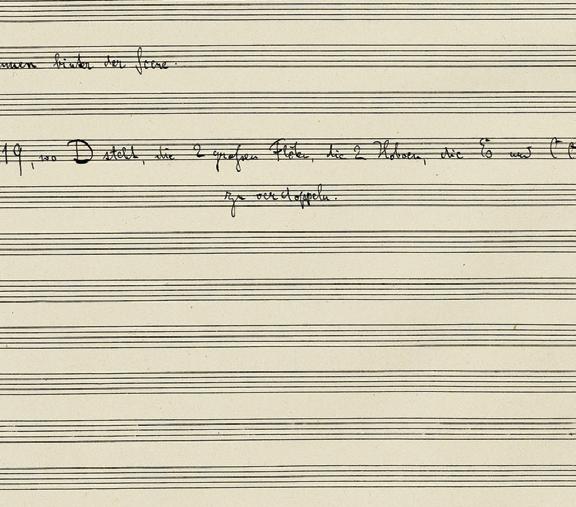 hinter der Scene.
19, wo D steht, die 2 großen Flöten, die 2 Hoboen, die Es und
zu verdoppeln.